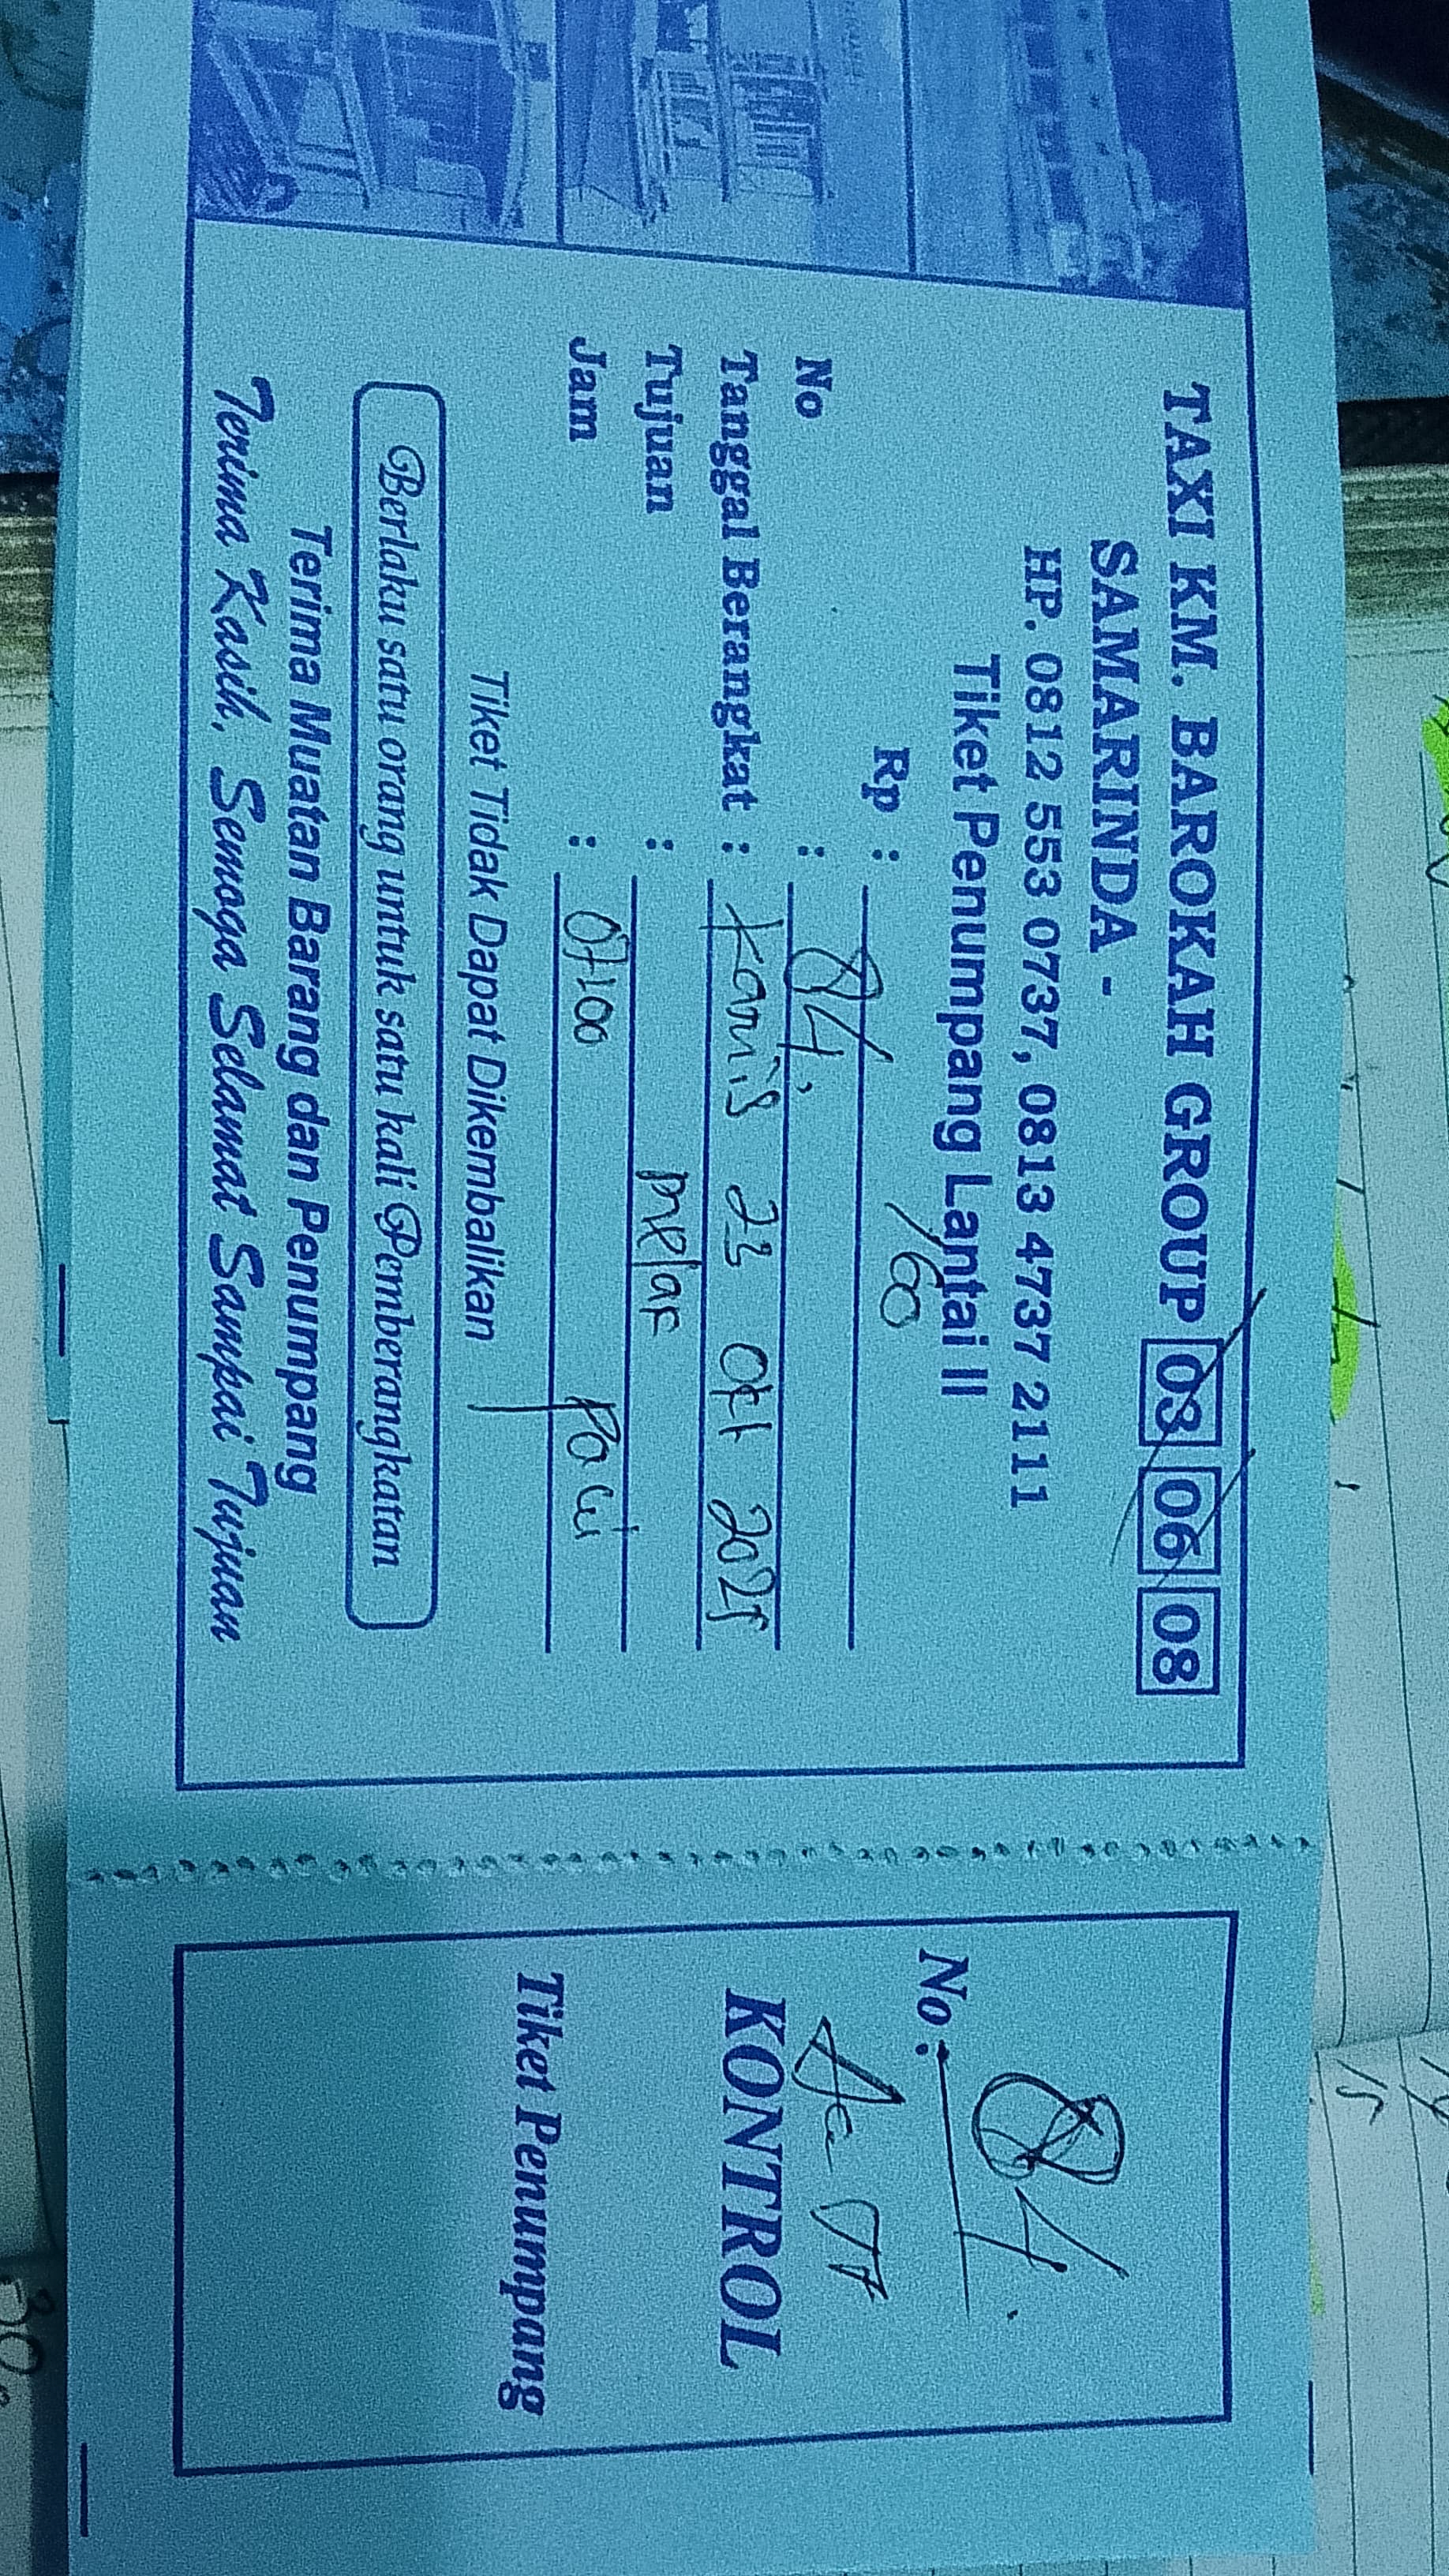 TAXI KM. BAROKAH GROUP 03 06 08
SAMARINDA -
HP. 0812 553 0737, 0813 4737 2111
Tiket Penumpang Lantai II
Rp : 160
No : 84.
Tanggal Berangkat : Kamis 23 okt 2025
Tujuan : melak
Jam : 07100 Pagi
Tiket Tidak Dapat Dikembalikan
Berlaku satu orang untuk satu kali Pemberangkatan
Terima Muatan Barang dan Penumpang
Terima Kasih, Semoga Selamat Sampai Tujuan
No : 84.
KONTROL
Tiket Penumpang